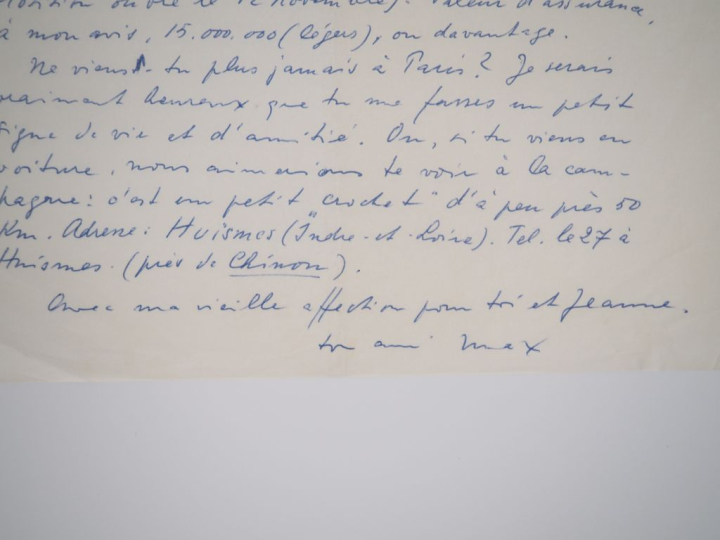 ouvre le 12 novembre). Valeur d'assurance,
à mon avis, 15.000.000 (légers), ou davantage.
Ne viens-tu plus jamais à Paris? Je serais
vraiment heureux que tu me fasses un petit
signe de vie et d'amitié. Ou, si tu viens en
voiture, nous aimerions te voir à la cam-
pagne: c'est un petit "crochet" d'à peu près 50
Km. Adresse: Huismes (Indre-et-Loire). Tel. le 27 à
Huismes (près de Chinon).
Avec ma vieille affection pour toi et Jeanne.
ton ami Max